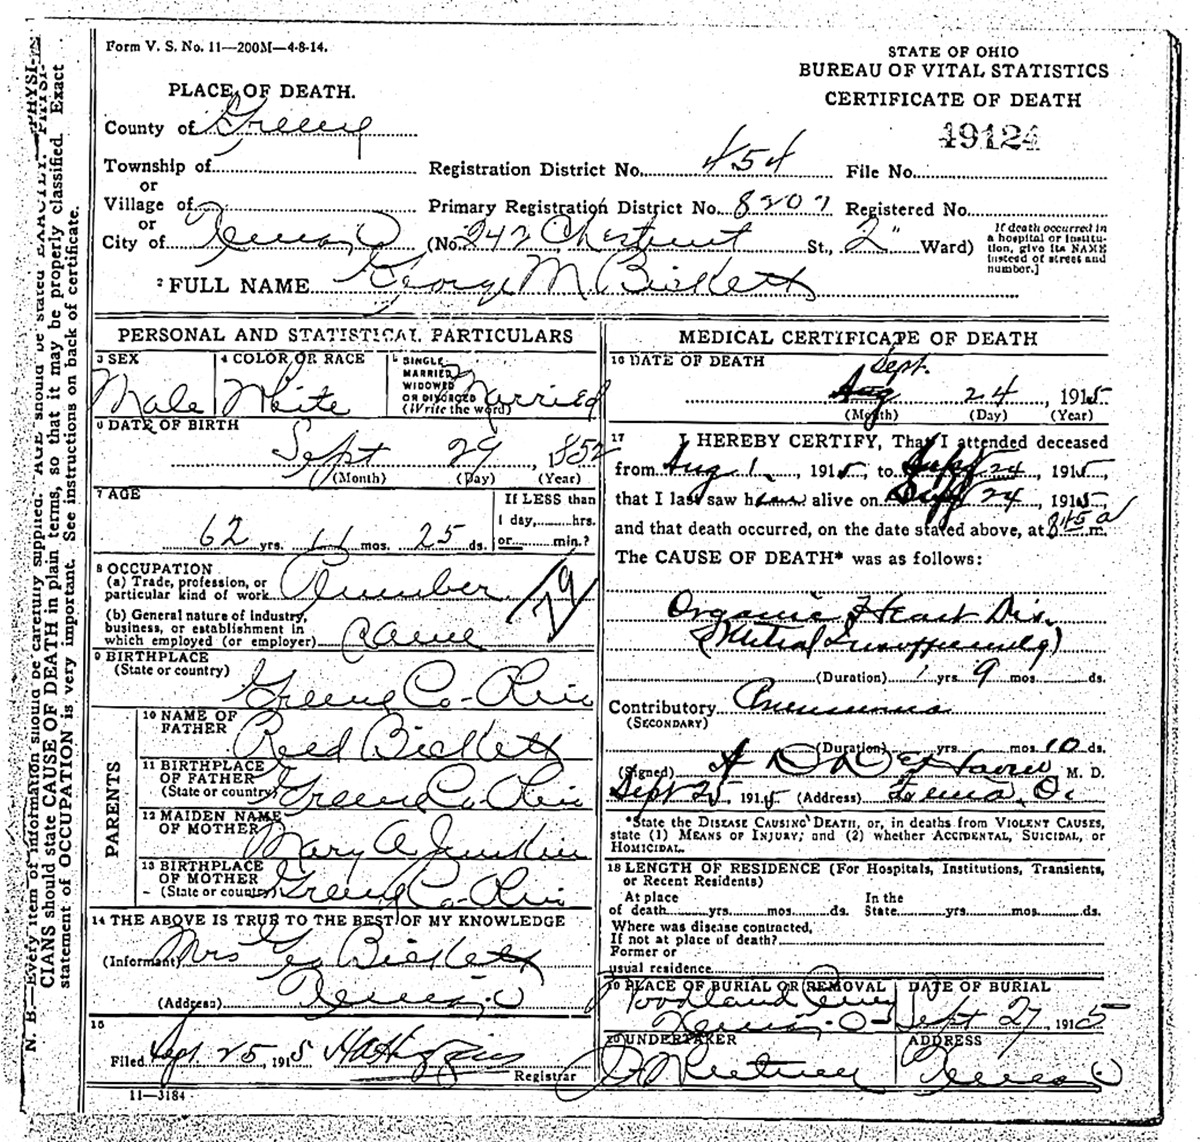 Form V. S. No. 11—200M—4-8-14.
STATE OF OHIO
BUREAU OF VITAL STATISTICS
CERTIFICATE OF DEATH
49124
PLACE OF DEATH.
County of Greene
Township of
or
Village of
or
City of Xenia O
Registration District No. 454 File No.
Primary Registration District No. 8207 Registered No.
(No. 242 Chestnut St., 2" Ward)
If death occurred in
a hospital or institu-
tion, give its NAME
instead of street and
number.]
2 FULL NAME George M Bickett
PERSONAL AND STATISTICAL PARTICULARS
3 SEX
Male
4 COLOR OR RACE
White
SINGLE
MARRIED
WIDOWED
OR DIVORCED
(Write the word)
Married
6 DATE OF BIRTH
Sept 29, 1852
(Month) (Day) (Year)
7 AGE
62 yrs. 11 mos. 25 ds.
If LESS than
1 day,.......hrs.
or.......min.?
8 OCCUPATION
(a) Trade, profession, or
particular kind of work Plumber
(b) General nature of industry,
business, or establishment in
which employed (or employer) Same
79
9 BIRTHPLACE
(State or country)
Greene Co- Ohio
PARENTS
10 NAME OF
FATHER
Reed Bickett
11 BIRTHPLACE
OF FATHER
(State or country)
Greene Co- Ohio
12 MAIDEN NAME
OF MOTHER
Mary A
13 BIRTHPLACE
OF MOTHER
(State or country)
Greene Co- Ohio
14 THE ABOVE IS TRUE TO THE BEST OF MY KNOWLEDGE
(Informant) Mrs Geo Bickett
(Address) Xenia, O
15
Filed Sept. 25, 1915
Registrar
11—3184
MEDICAL CERTIFICATE OF DEATH
16 DATE OF DEATH
Sept.
Aug 24, 1915
(Month) (Day) (Year)
17 I HEREBY CERTIFY, That I attended deceased
from Aug 1, 1915, to Sept 24, 1915
that I last saw him alive on Sept 24, 1915
and that death occurred, on the date stated above, at 8 45 a m.
The CAUSE OF DEATH* was as follows:
Organic Heart Dis.
(Mitral Insufficiency)
(Duration) 1 yrs. 9 mos. ds.
Contributory Pneumonia
(SECONDARY)
(Duration) yrs. mos. 10 ds.
(Signed) A D M. D.
Sept 25, 1915 (Address) Xenia, O.
*State the DISEASE CAUSING DEATH, or, in deaths from VIOLENT CAUSES,
state (1) MEANS OF INJURY; and (2) whether ACCIDENTAL, SUICIDAL, or
HOMICIDAL.
18 LENGTH OF RESIDENCE (For Hospitals, Institutions, Transients,
or Recent Residents)
At place
of death.......yrs.......mos.......ds.
In the
State.......yrs.......mos.......ds.
Where was disease contracted,
If not at place of death?
Former or
usual residence
19 PLACE OF BURIAL OR REMOVAL
Woodland Cem
Xenia- O-
DATE OF BURIAL
Sept 27, 1915
20 UNDERTAKER
ADDRESS
Xenia O
N. B.—Every item of information should be carefully supplied. AGE should be stated EXACTLY. PHYSI-
CIANS should state CAUSE OF DEATH in plain terms, so that it may be properly classified. Exact
statement of OCCUPATION is very important. See instructions on back of certificate.